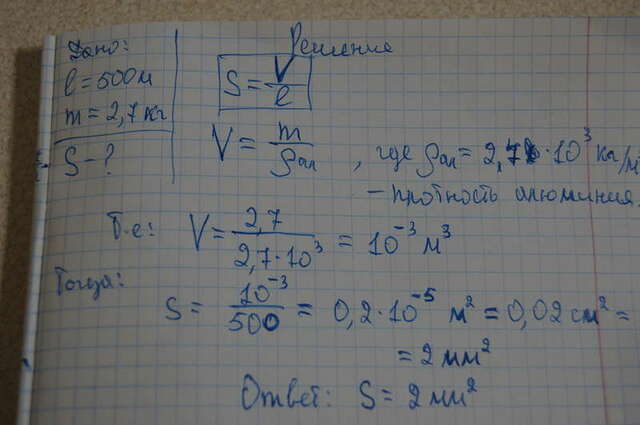 Дано:
l = 500 м
m = 2,7 кг
S - ?
Решение
S = V/l
V = m/ρал , где ρал = 2,7 · 10³ кг/м
— плотность алюминия.
Т.е: V = 2,7/(2,7·10³) = 10⁻³ м³
Тогда:
S = 10⁻³/500 = 0,2·10⁻⁵ м² = 0,02 см² =
= 2 мм²
Ответ: S = 2 мм²